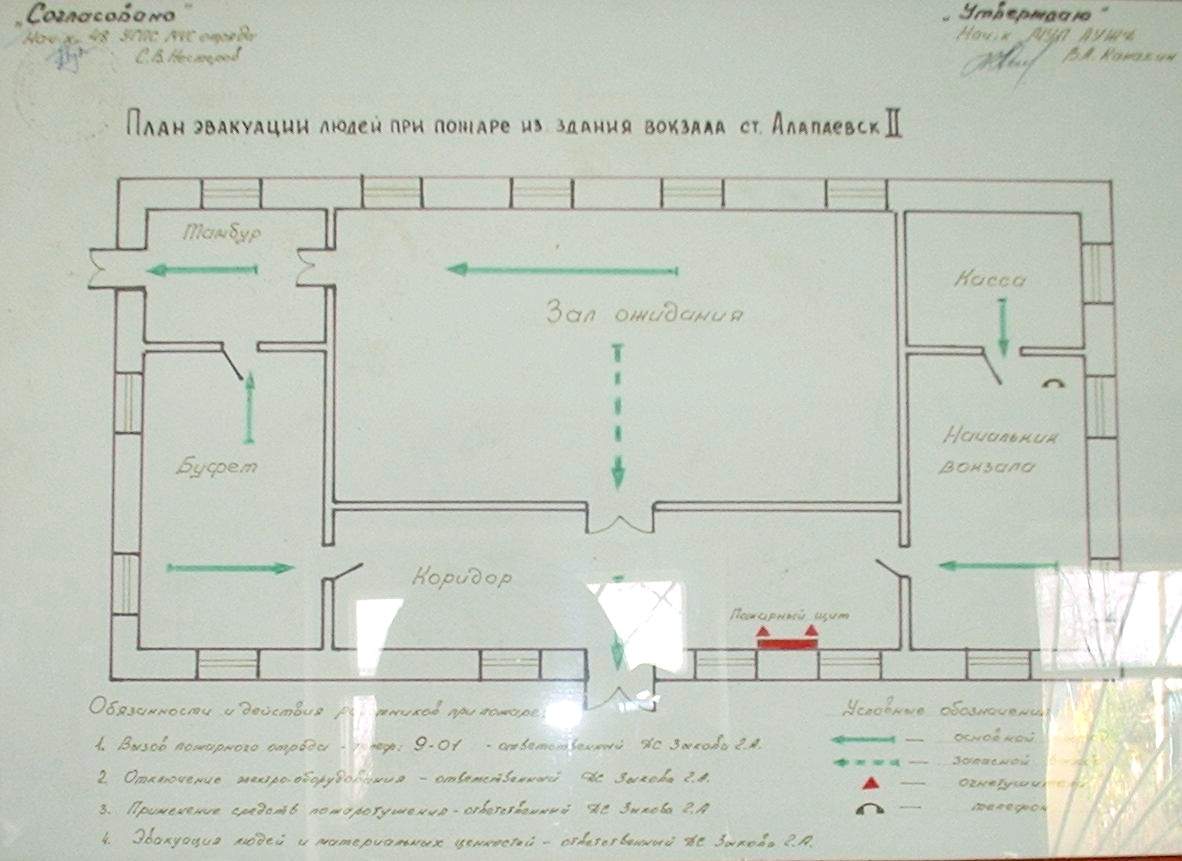 „Согласовано"
С.В. Нестеров
„Утверждаю"
План эвакуации людей при пожаре из здания вокзала ст. Алапаевск II
Тамбур
Касса
Зал ожидания
Начальник
вокзала
Буфет
Коридор
Пожарный щит
Обязанности и действия при пожаре
1. Вызов пожарного отряда - 9-01 - ответственный ДС Зыкова Г.А.
2. Отключение электро-оборудования - ответственный ДС Зыкова Г.А.
3. Применение средств пожаротушения - ответственный ДС Зыкова Г.А
4. Эвакуация людей и материальных ценностей - ответственный ДС Зыкова Г.А.
Условные обозначения
— основной
— запасной
— огнетушитель
— телефон